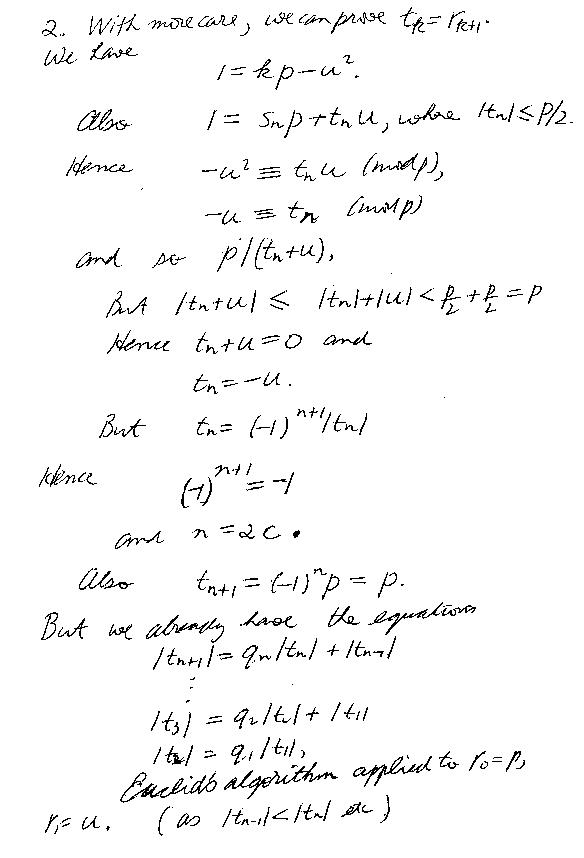 2. With more care, we can prove t_k = r_{k+1}.
We have
1 = kp - u².
Also 1 = s_n p + t_n u, where |t_n| ≤ p/2.
Hence -u² ≡ t_n u (mod p),
-u ≡ t_n (mod p)
and so p | (t_n + u),
But |t_n + u| ≤ |t_n| + |u| < p/2 + p/2 = p
Hence t_n + u = 0 and
t_n = -u.
But t_n = (-1)^{n+1} |t_n|
Hence
(-1)^{n+1} = -1
and n = 2c.
Also t_{n+1} = (-1)^n p = p.
But we already have the equations
|t_{n+1}| = q_n |t_n| + |t_{n-1}|
⋮
|t_3| = q_2 |t_2| + |t_1|
|t_2| = q_1 |t_1|,
Euclid's algorithm applied to r_0 = p,
r_1 = u. (as |t_{n-1}| < |t_n| etc)